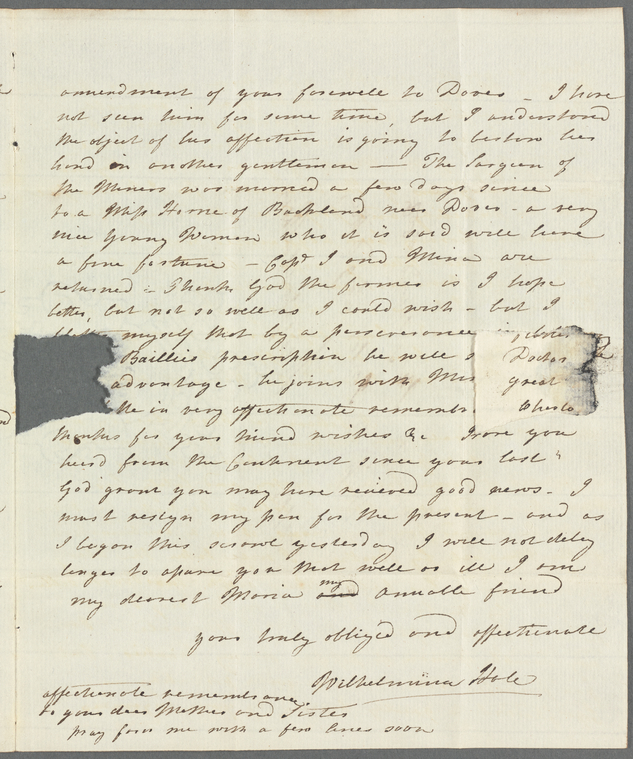 amendment of your farewell to Dover – I have
not seen him for some time, but I understand
the object of his affection is going to bestow her
hand on another gentleman — The Surgeon of
the Miners was married a few days since
to a Miss Horne of Buckland near Dover – a very
nice Young Woman who it is said will have
a fine fortune – Capt. I and Mina are
returned – Thank God the former is I hope
better, but not so well as I could wish – but I
myself that by a perseverance in
Baillies prescription he will Doctor
advantage – he joins with Mrs great
in very affectionate
thanks for your kind wishes &c Have you
heard from the Continent since your last
God grant you may have recieved good news – I
must resign my pen for the present – and as
I began this scrawl yesterday I will not delay
longer to assure you that well or ill I am
my dearest Maria my and amiable friend
yours truly obliged and affectionate
Wilhelmina
affectionate remembrance
to your dear Mother and Sister
pray favor me with a few lines soon